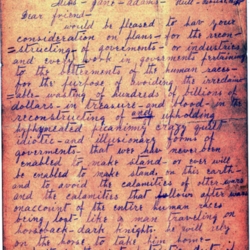 Miss - Jane - Adams - Hull - House
Dear friend -
would be pleased to hav your
consideration on plans - for the recon
=structing - of goverments - or industries
and every work in goverments pertaing
to the betterments of the human races
for the purpose of avoiding the
wasting of hundreds of billions of
dollars - in treasure - and blood - in the
reconstructing of only upholding
hyphycolated picaninny crazy quilt
idiotic - and illusionary forms of
goverments - that wer - have never been
enabled to make stand - or ever will
be enabled to make stand, in this earth -
and to avoid the calamities of after - wars
and the calamities that follows after wars
onaccount of the entire human races
being lost - like a man traveling on
horseback - dark knights, he will rely
on the horse to take him home -